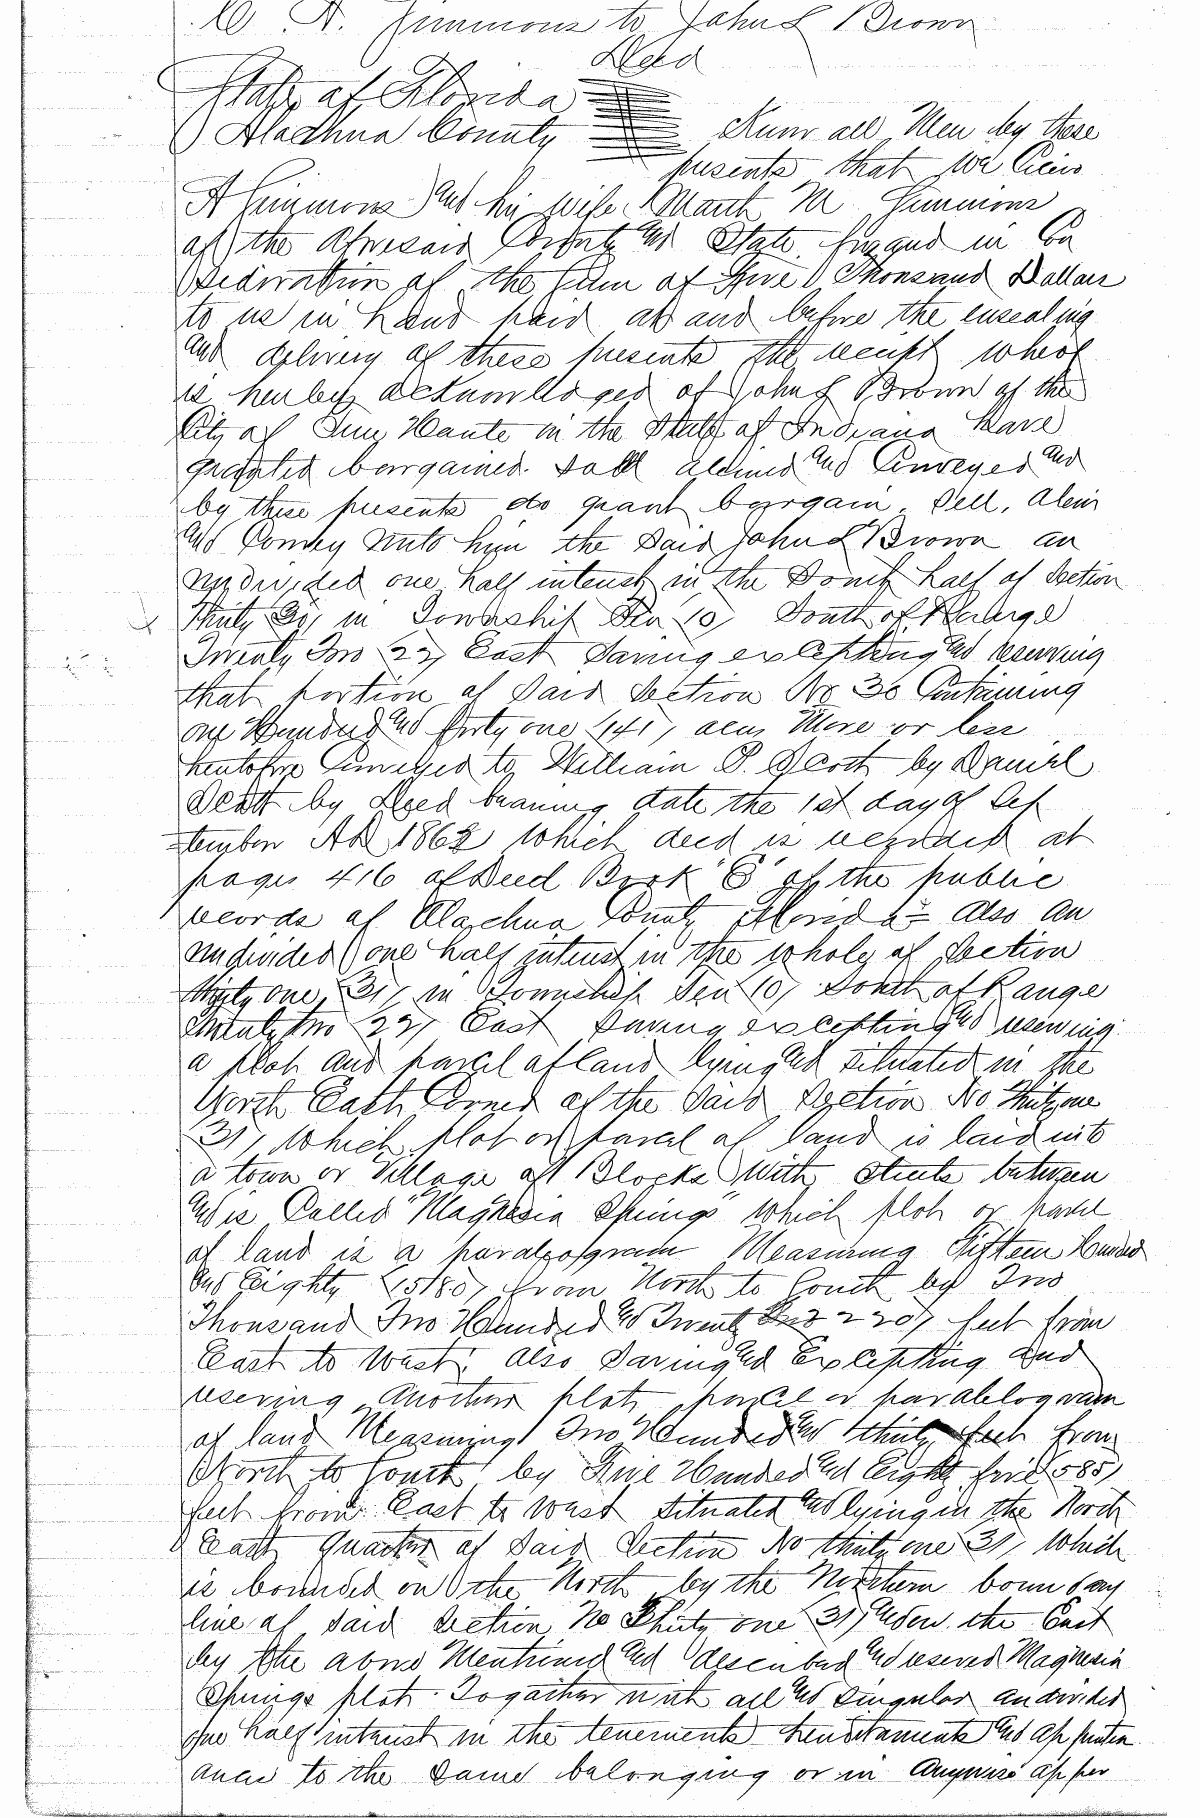 A. Simmons to John L Brown
Deed
State of Florida
Alachua County Know all Men by these
presents that we
A Simmons and his wife M Simmons
of the Aforesaid County and State for and in Con
sideration of the Sum of Five Thousand Dollars
to us in hand paid at and before the ensealing
and delivery of these presents the receipt wherof
is hereby acknowledged of John L Brown of the
City of Terre Haute in the State of Indiana have
granted bargained sold aliened and Conveyed and
by these presents do grant bargain, Sell, alein
and Convey unto him the Said John L Brown an
undivided one half interest in the South half of Section
Thirty Six in Township Ten (10) South of Range
Twenty Two (22) East Saving excepting and reserving
that portion of Said Section No 36 Containing
one Hundred and forty one (141) acres More or less
heretofore Conveyed to William P. Scott by Daniel
Scott by Deed bearing date the 1st day of Sep
tember AD 1868 which deed is recorded at
pages 416 of Deed Book "E" of the public
records of Alachua County Florida = Also an
undivided one half interest in the whole of Section
thirty one (31) in Township Ten (10) South of Range
Twenty two (22) East Saving excepting and reserving
a plot and parcel of land lying and situated in the
North East Corner of the Said Section No Thirty one
(31) which plot or parcel of land is laid into
a town or Village of Blocks with streets between
and is Called "Magnesia Springs" which plot or parcel
of land is a paralpogram Measuring Fifteen Hundred
and Eighty (1580) from North to South by Two
Thousand Two Hundred and Twenty 2220) feet from
East to West; also Saving and Excepting and
reserving another plot, parcel or paralelogram
of land Measuring Two Hundred and thirty feet from
North to South by Five Hundred and Eighty five (585)
feet from East to West situated and lying in the North
East Quarter of Said Section No thirty one (31) which
is bounded on the North by the Northern boundary
line of said Section No Thirty one (31) and on the East
by the above Mentioned and described and reserved Magnesia
Springs plot. Togather with all and Singular undivided
one half interest in the tenements hereditaments and appurten
ances to the Same belonging or in Anywise apper